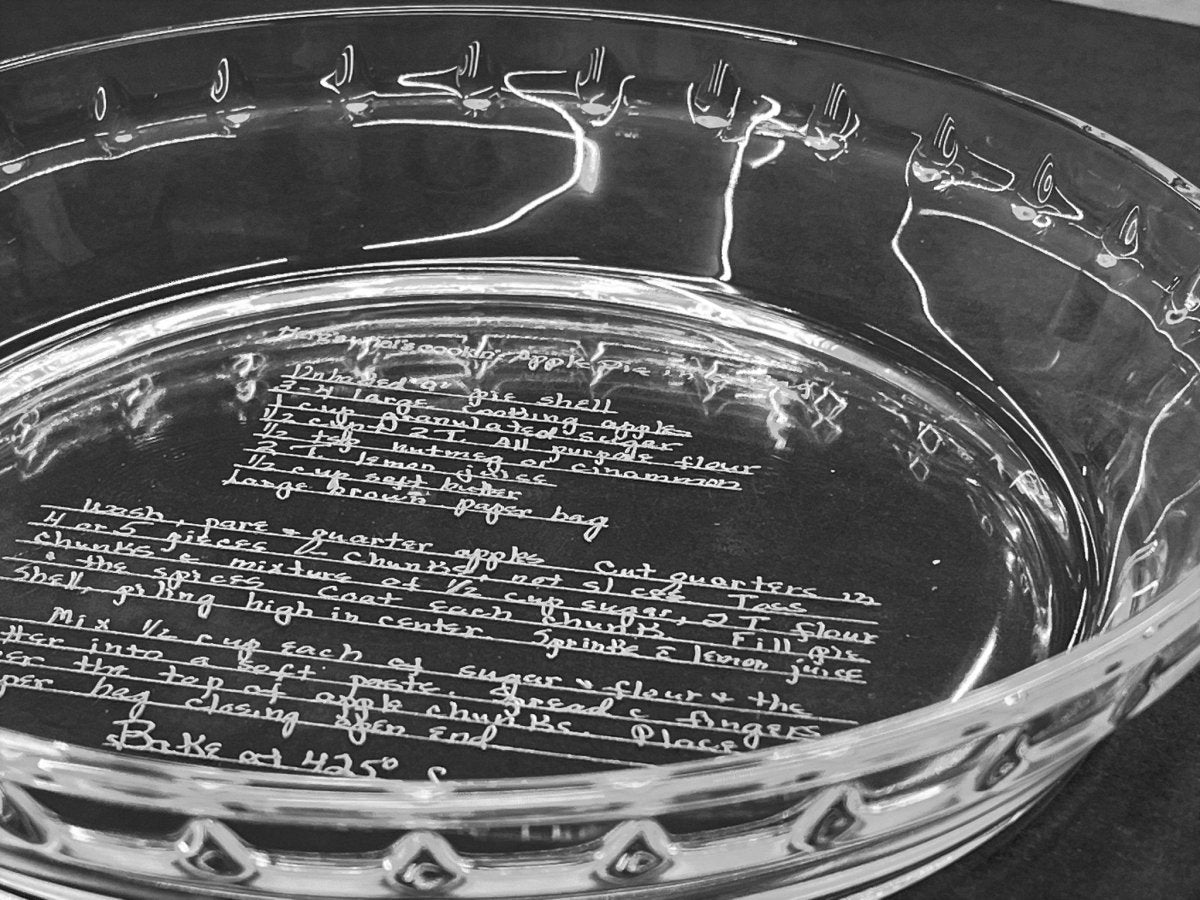 Here's what's cookin' Apple Pie
Unbaked 9" pie shell
3-4 large cooking apples
1 cup granulated sugar
1/2 cup & 2 T. All purpose flour
1/2 tsp nutmeg or cinammon
2 T. lemon juice
1/2 cup soft butter
Large brown paper bag
Wash, pare & quarter apples Cut quarters in
4 or 5 pieces Chunked, not sliced Toss
chunks c mixture of 1/2 cup sugar, 2 T flour
& the spices Coat each chunk. Fill pie
shell, piling high in center. Sprinkle c lemon juice
Mix 1/2 cup each of sugar & flour & the
tter into a soft paste. Spread c fingers
er the top of apple chunks. Place
per bag closing open end
Bake at 425°